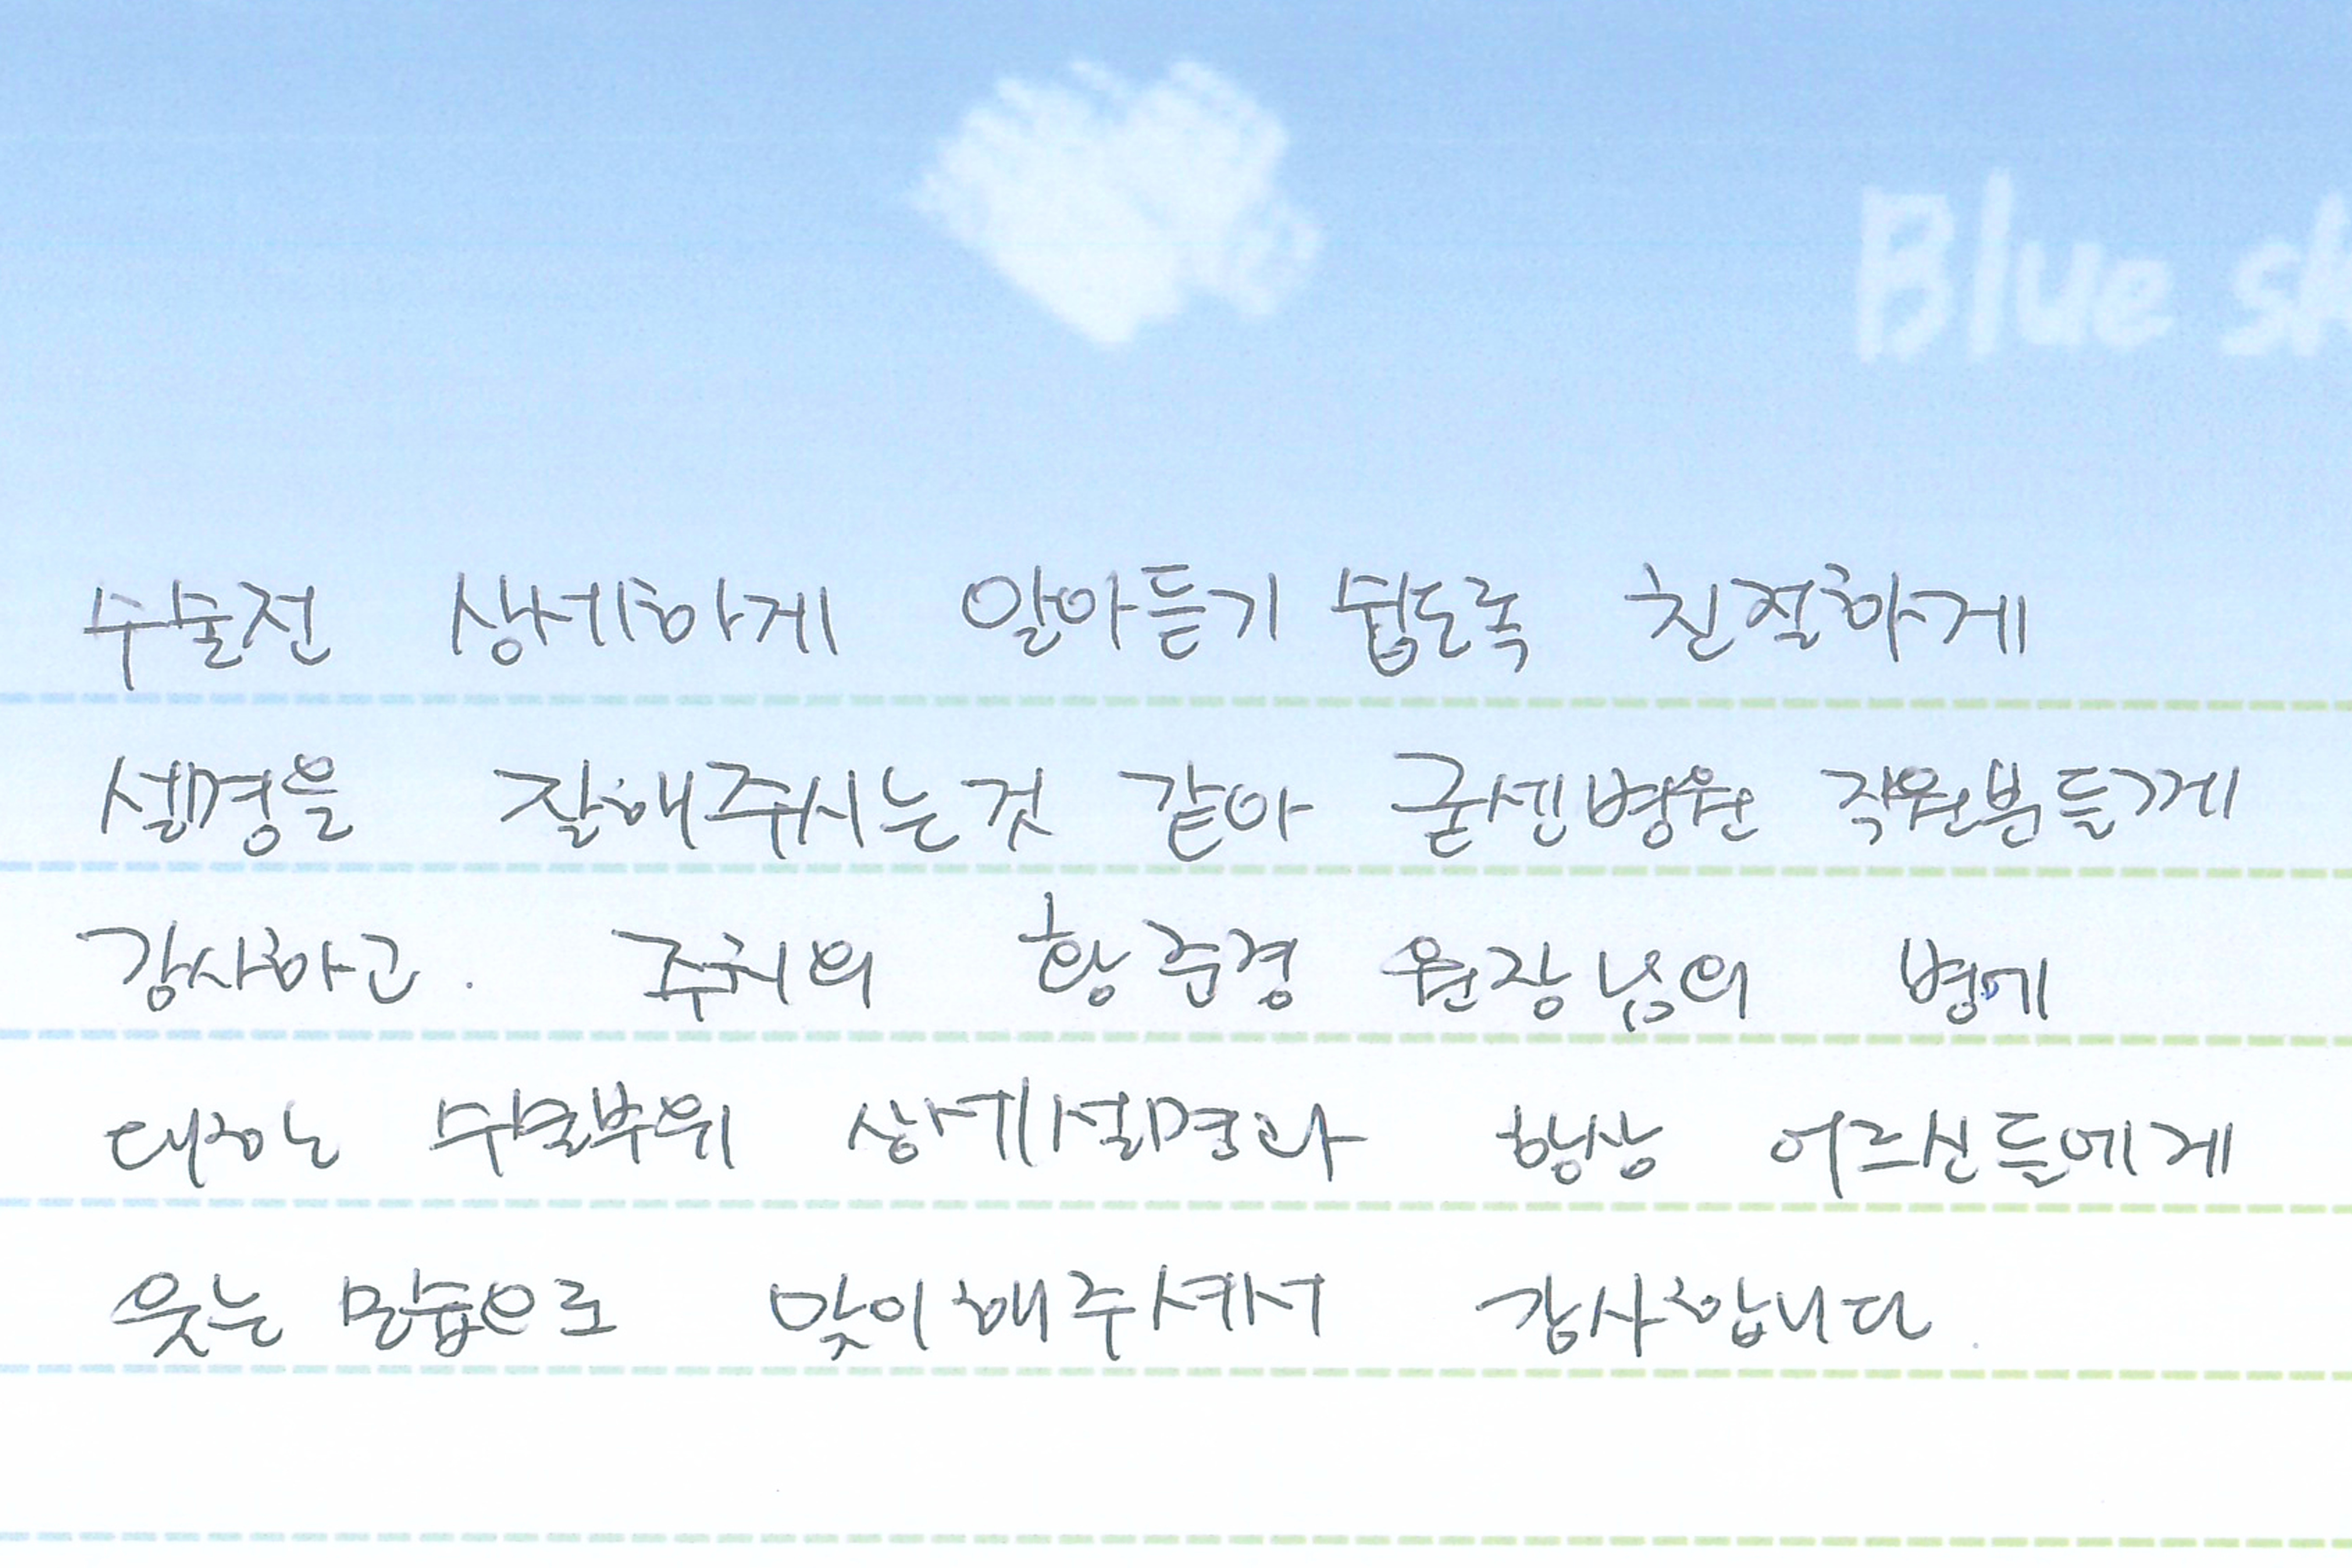 Blue sk
수술전 상세하게 알아듣기 쉽도록 친절하게
설명을 잘해주시는것 같아 굳센병원 직원분들게
감사하고. 주치의 황준경 원장님의 병에
대하는 수술부위 상세설명과 항상 어르신들에게
웃는 모습으로 맞이해주셔서 감사합니다.